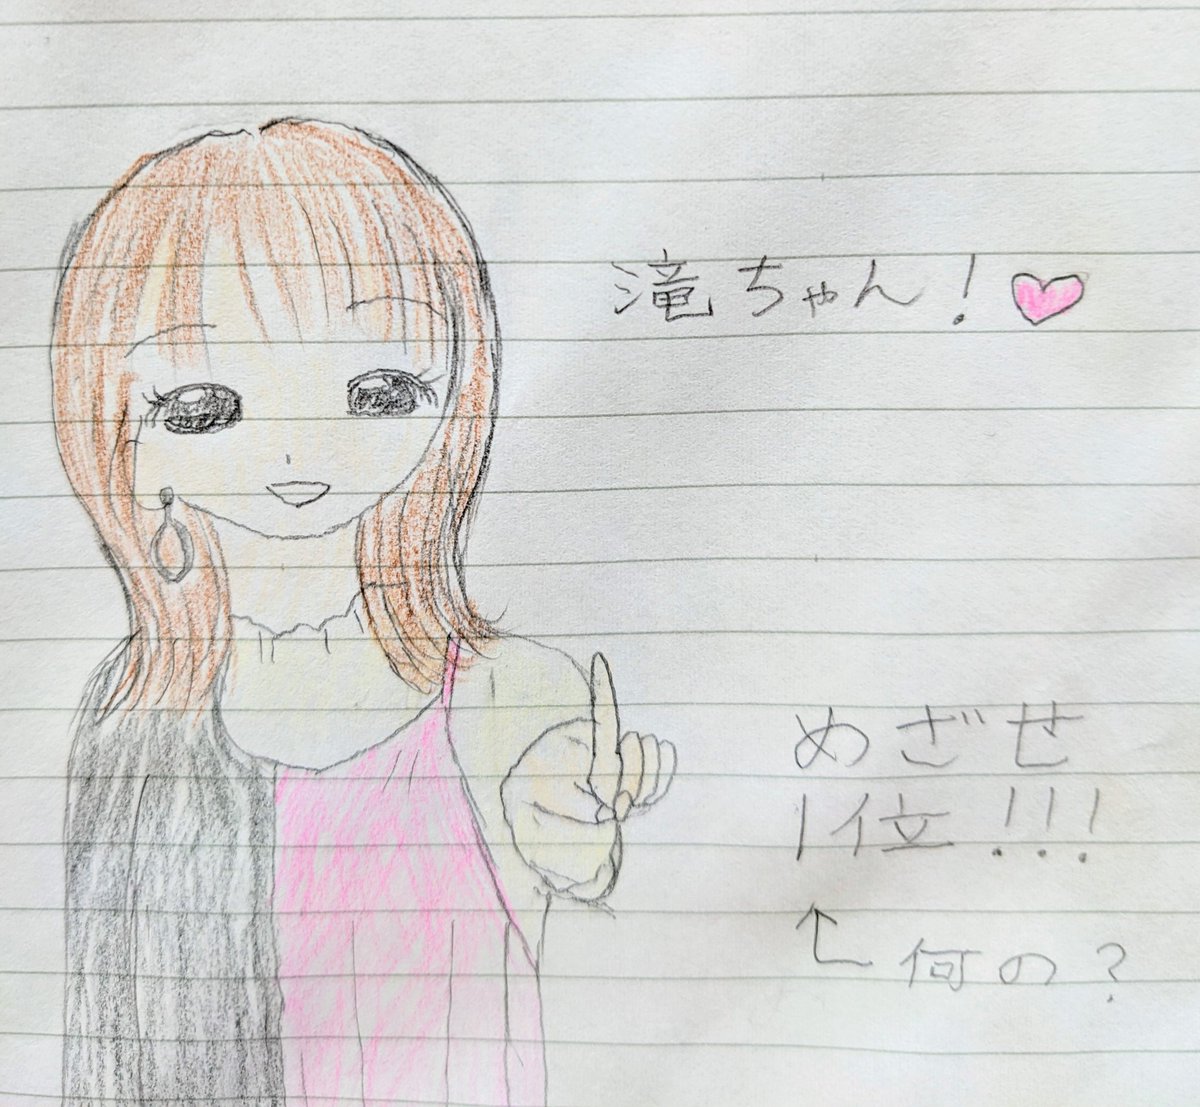 滝ちゃん!♡
めざせ
1位!!!
何の?